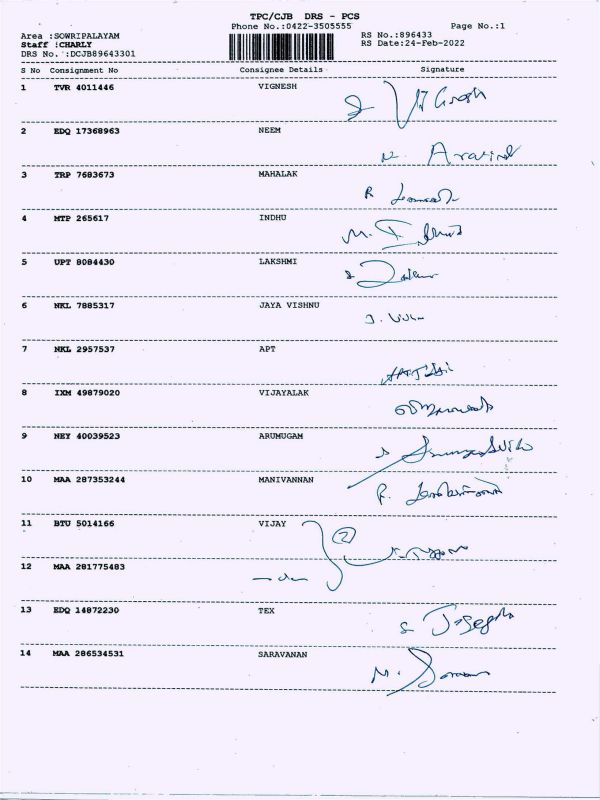 TPC/CJB DRS - PCS
Phone No.:0422-3505555 Page No.:1
Area :SOWRIPALAYAM RS No.:896433
Staff :CHARLY RS Date:24-Feb-2022
DRS No. :DCJB89643301
S No Consignment No Consignee Details Signature
1 TVR 4011446 VIGNESH
2 EDQ 17368963 NEEM
N. Aravind
3 TRP 7683673 MAHALAK
4 MTP 265617 INDHU
5 UPT 8084430 LAKSHMI
6 NKL 7885317 JAYA VISHNU
7 NKL 2957537 APT
8 IXM 49879020 VIJAYALAK
9 NEY 40039523 ARUMUGAM
10 MAA 287353244 MANIVANNAN
11 BTU 5014166 VIJAY
2
12 MAA 281775483
13 EDQ 14872230 TEX
S Joseph
14 MAA 286534531 SARAVANAN